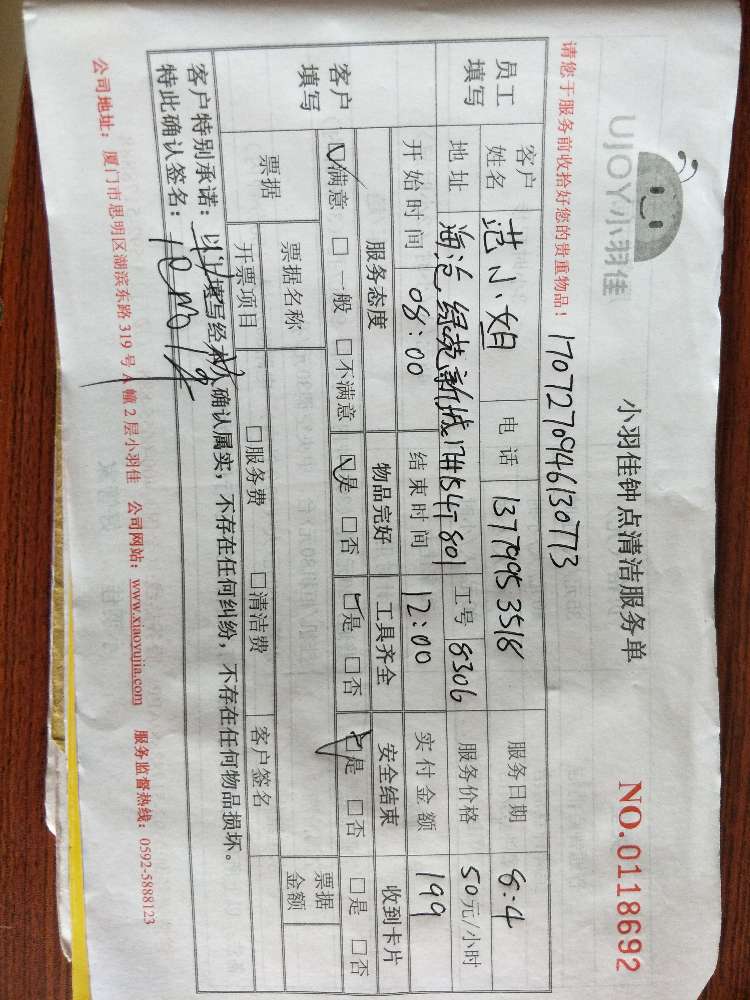 UJOY小羽佳
小羽佳钟点清洁服务单
NO.0118692
请您于服务前收拾好您的贵重物品！
17072709461307 73
员工填写 客户姓名 范小姐 电话 13779953518 服务日期 8.4
地址 海沧绿苑新城 801 工号 8306 服务价格 50元/小时
开始时间 08:00 结束时间 12:00 实付金额 199
客户填写 服务态度 物品完好 工具齐全 安全结束 收到卡片
☑满意 □一般 □不满意 ☑是 □否 ☑是 □否 ☑是 □否 □是 □否
票据 票据名称 票据金额
开票项目 □服务费 □清洁费 客户签名
客户特别承诺：以上填写经本人确认属实，不存在任何纠纷，不存在任何物品损坏。
特此确认签名：
公司地址：厦门市思明区湖滨东路 319 号 A 幢 2 层小羽佳 公司网站：www.xiaoyujia.com 服务监督热线：0592-5888123